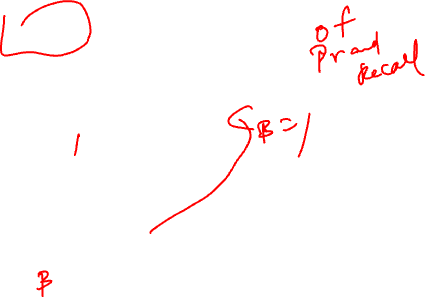 of
Pr and
Recall
1
B = 1
B